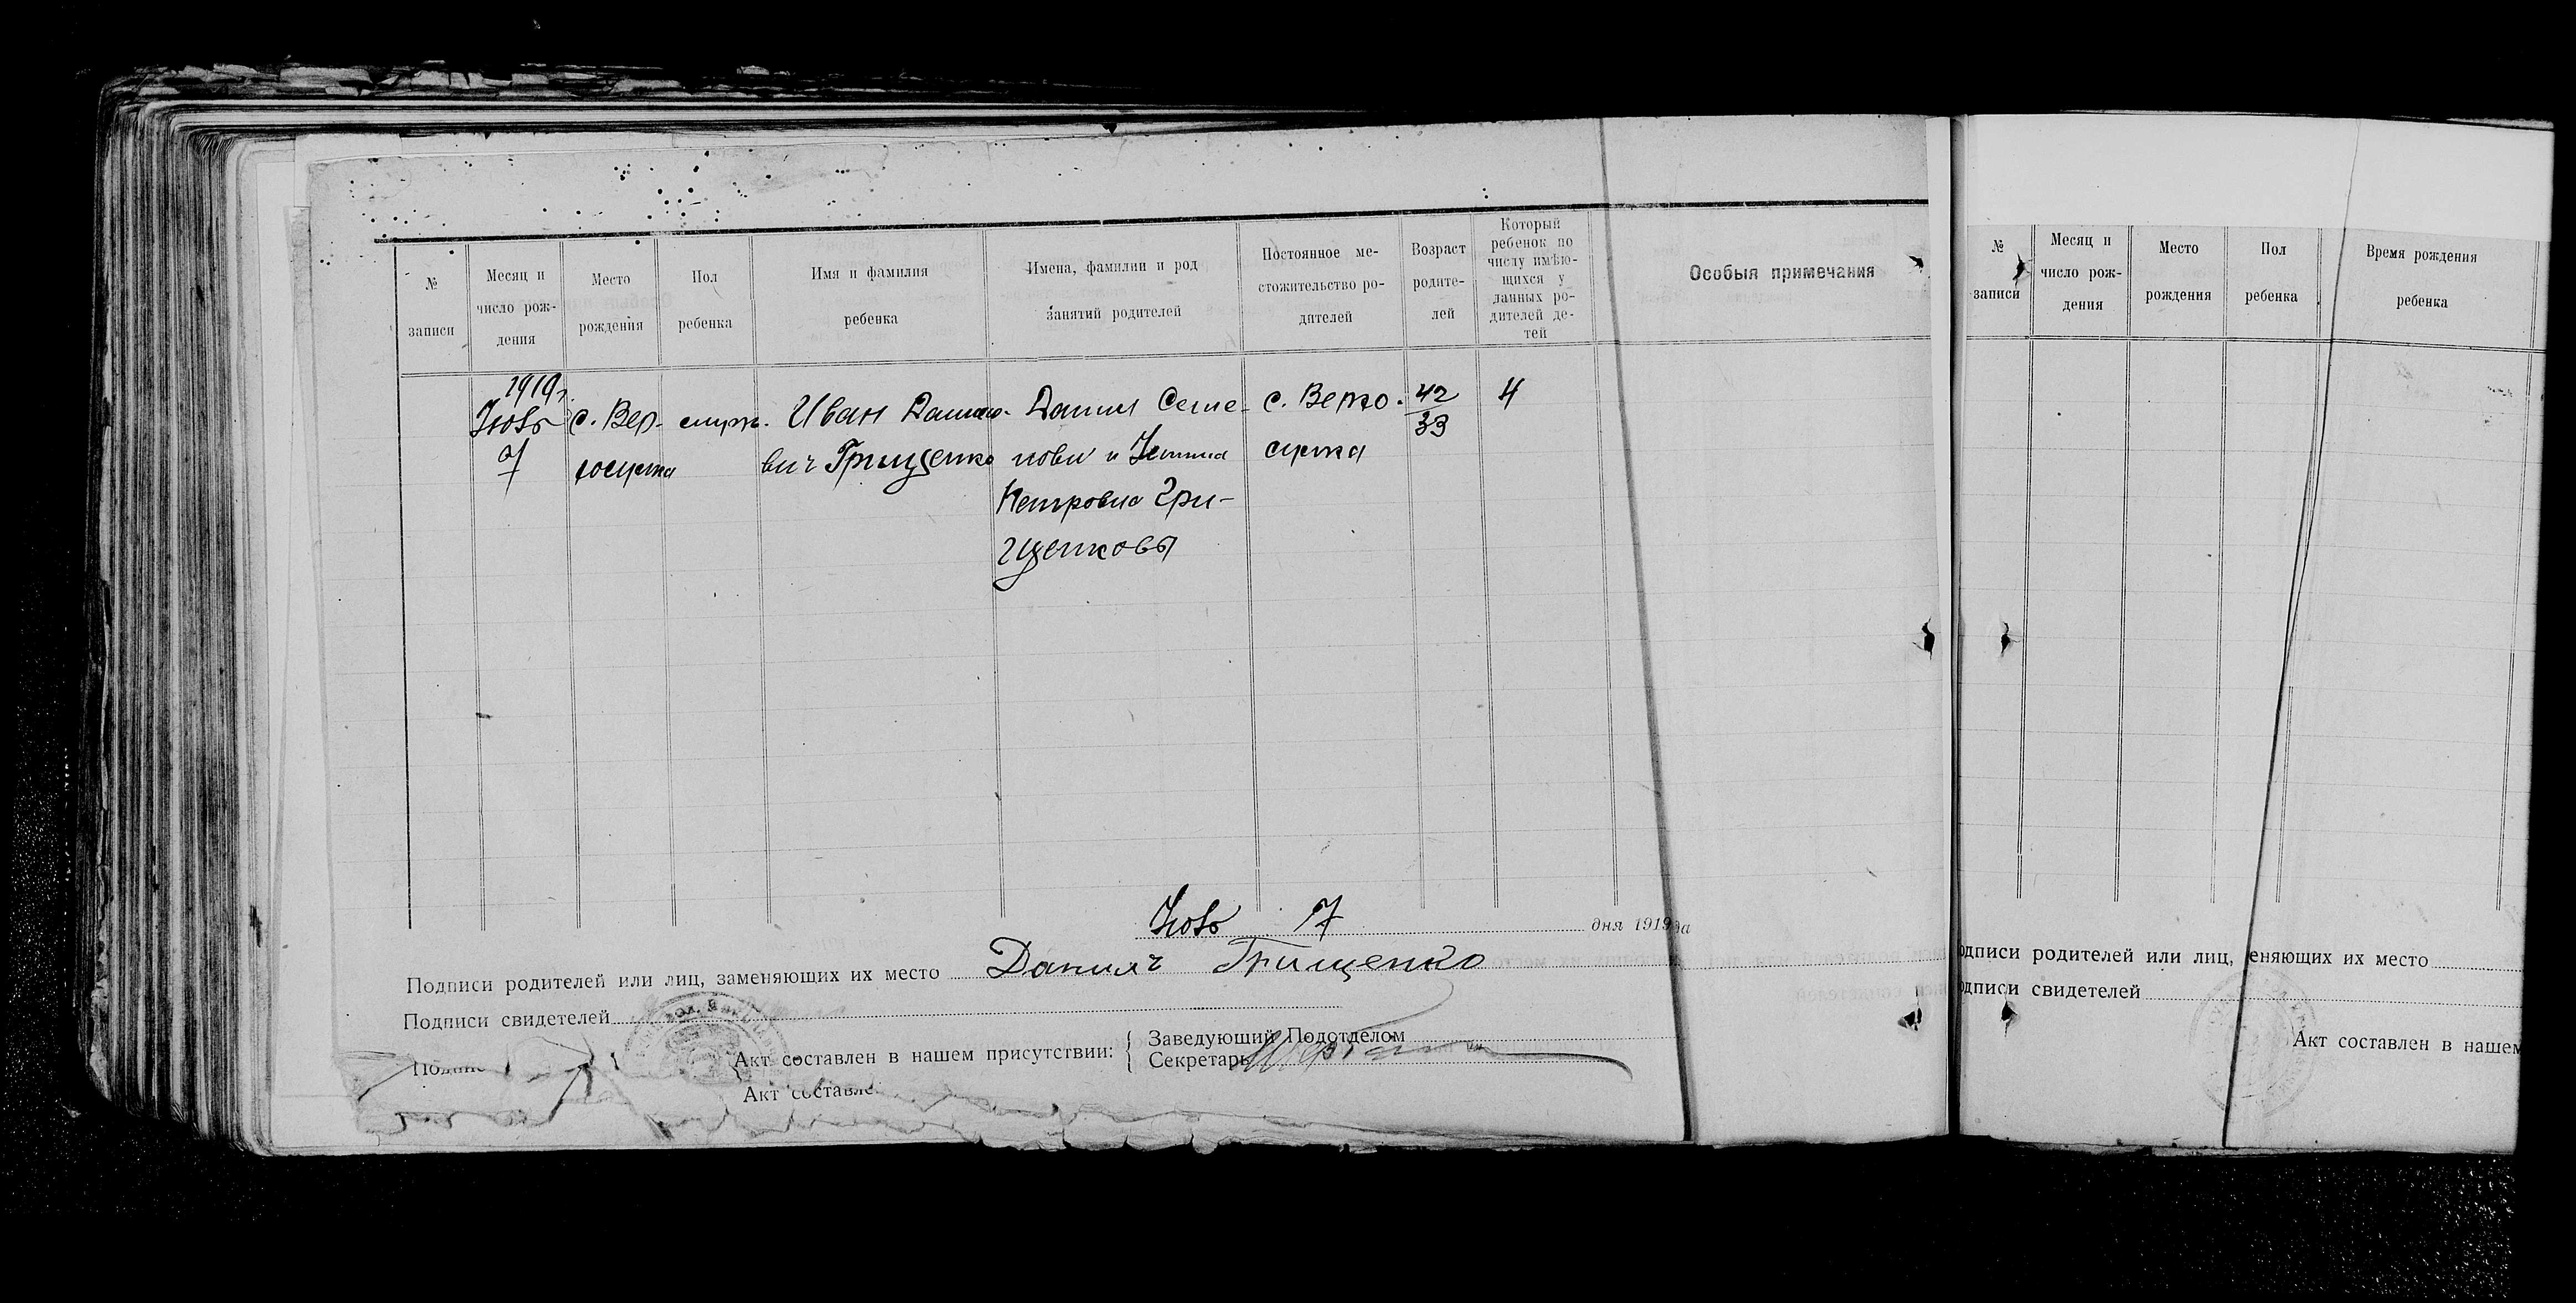 № записи
Месяц и число рождения
Место рождения
Пол ребенка
Имя и фамилия ребенка
Имена, фамилии и род занятий родителей
Постоянное местожительство родителей
Возраст родителей
Который ребенок по числу имѣющихся у данных родителей детей
Особыя примечания
1919г.
7
с. Вер-
Иван
вич Грищенко
Данил Семе-
нови и
Петровна Гри-
щенковы
с. Верхо-
сулка
42
33
4
7
дня 1919 да
Подписи родителей или лиц, заменяющих их место Данилъ Грищенко
Подписи свидетелей
Акт составлен в нашем присутствии:
Заведующий Подотделом
Секретарь
Акт составле
№ записи
Месяц и число рождения
Место рождения
Пол ребенка
Время рождения ребенка
одписи родителей или лиц, еняющих их место
одписи свидетелей
Акт составлен в нашем